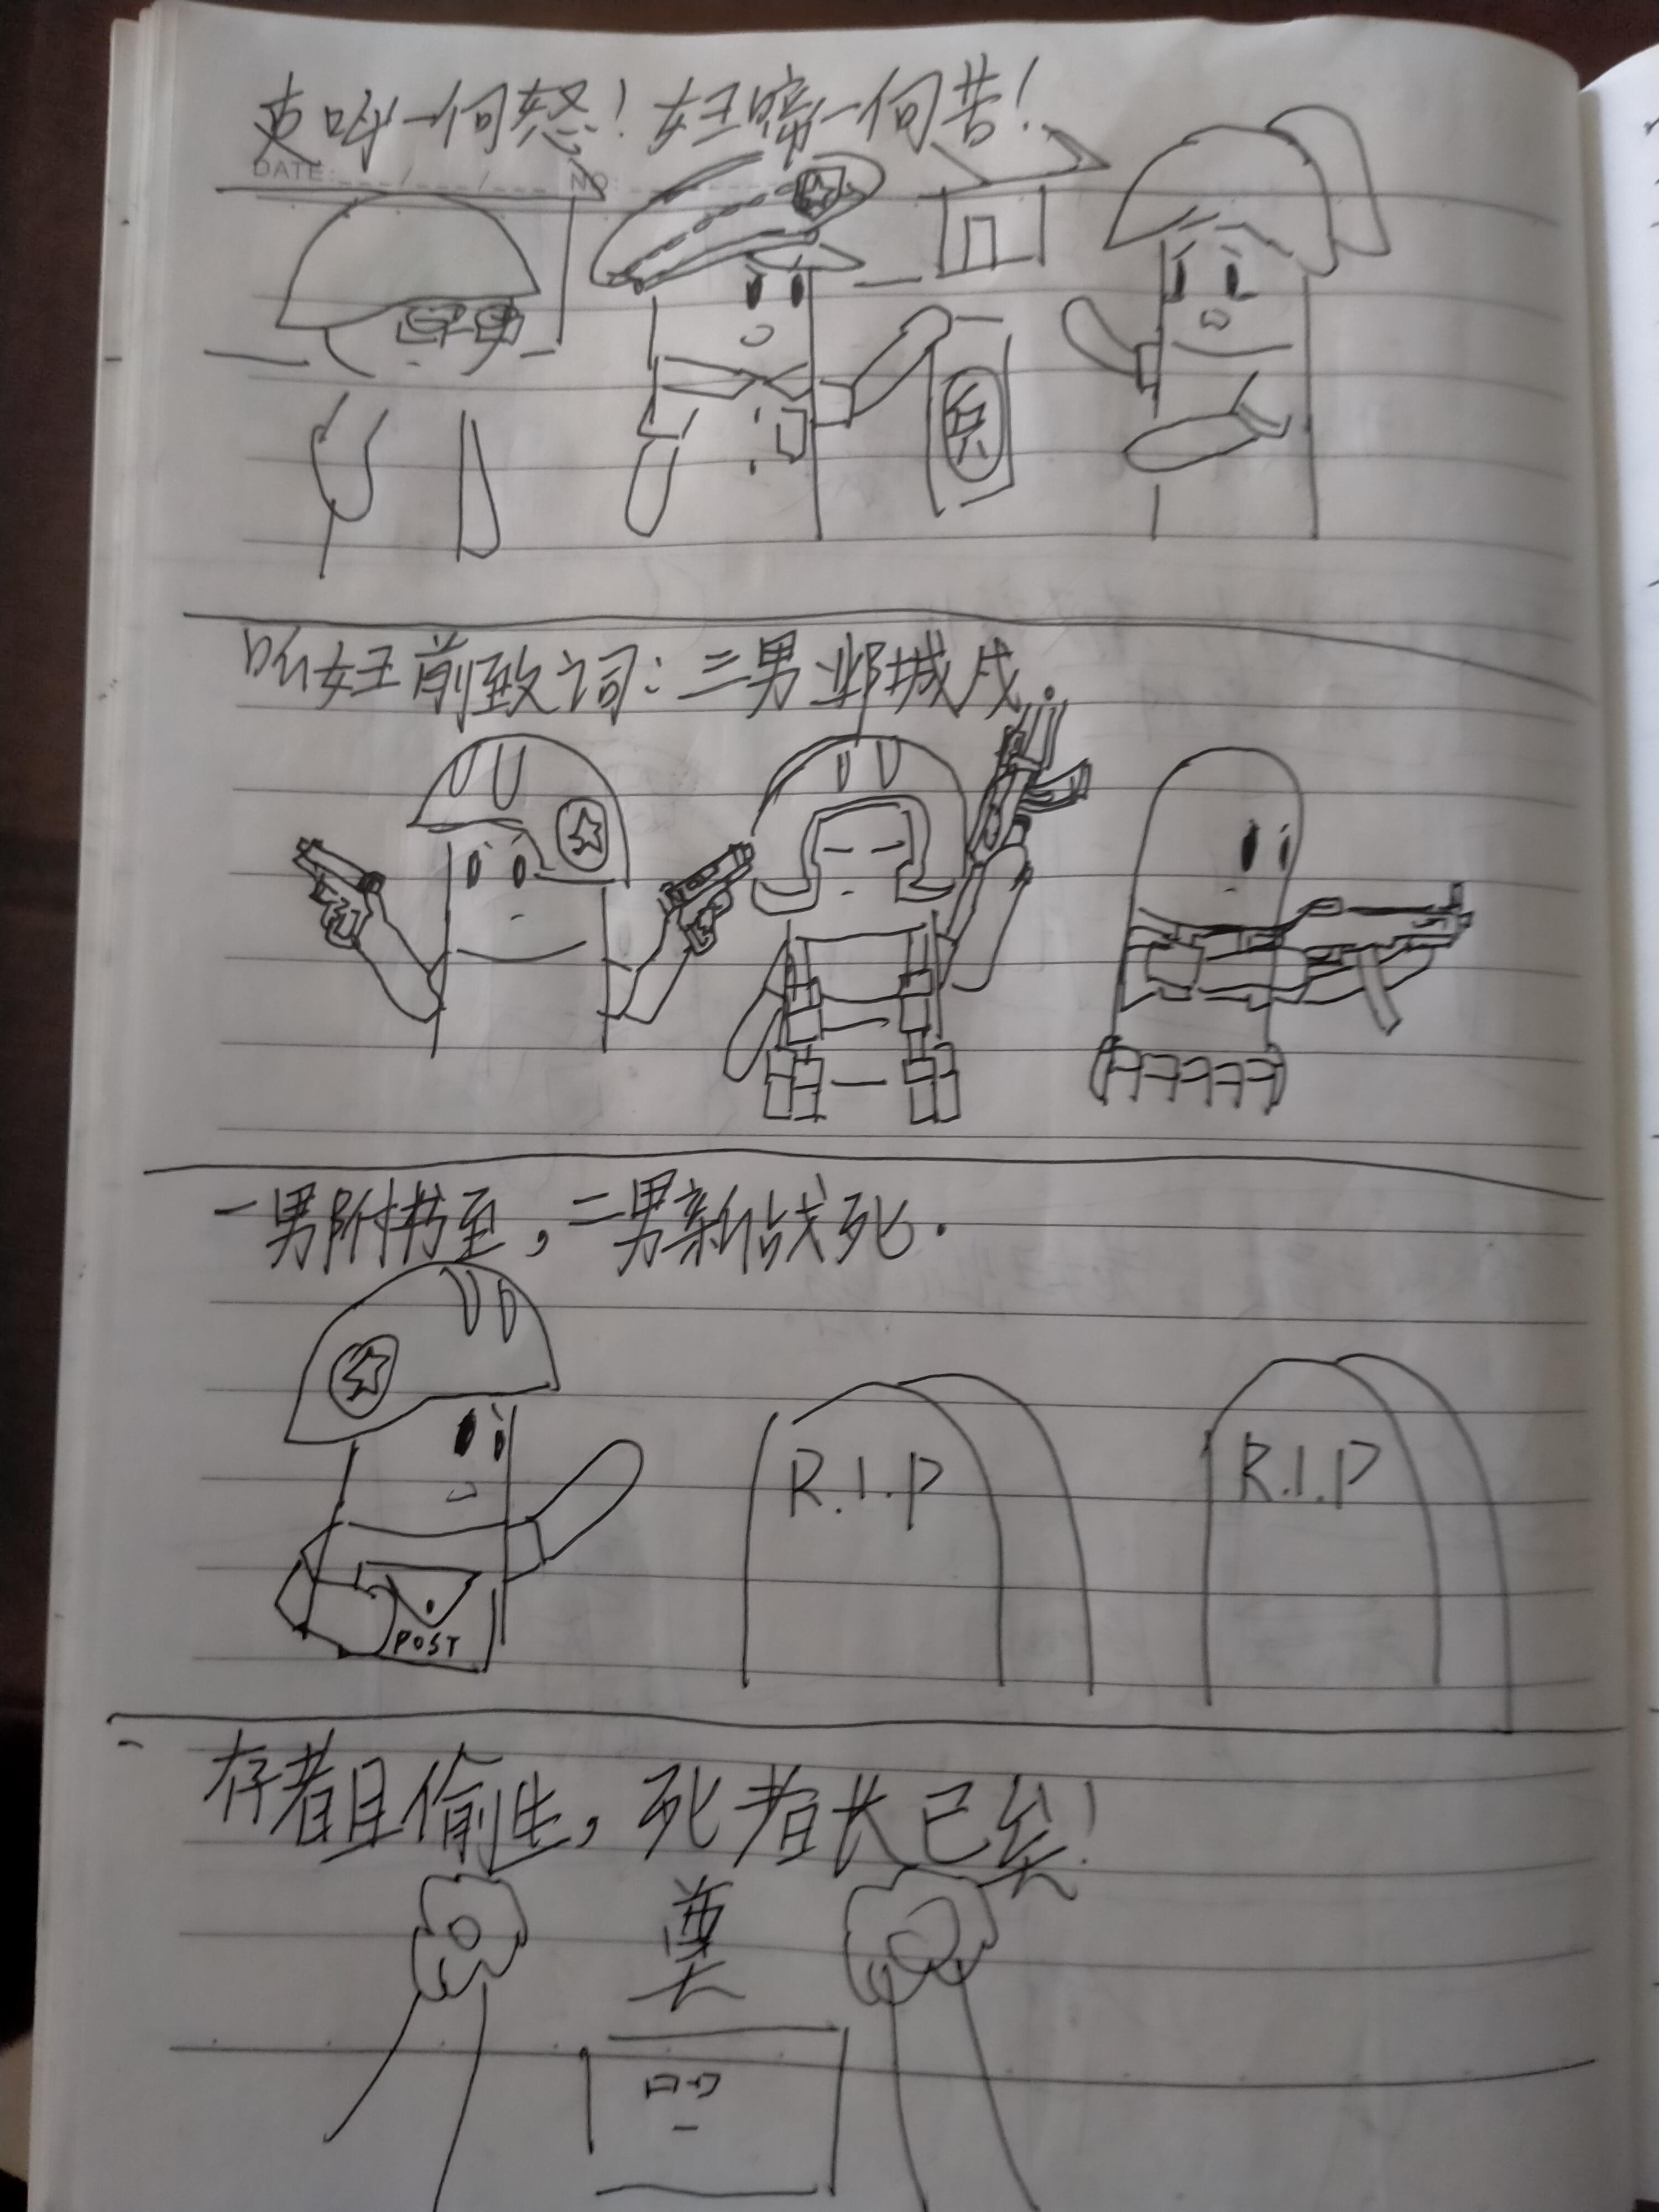 吏呼一何怒！妇啼一何苦！
DATE: NO:
兵
听妇前致词：三男邺城戍.
一男附书至，二男新战死.
R.I.P R.I.P
POST
存者且偷生，死者长已矣！
奠